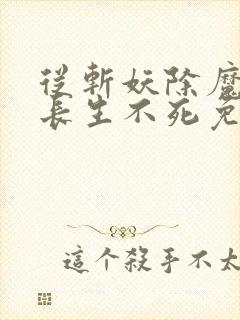 從斬妖除魔
長生不死免
這个殺手不太